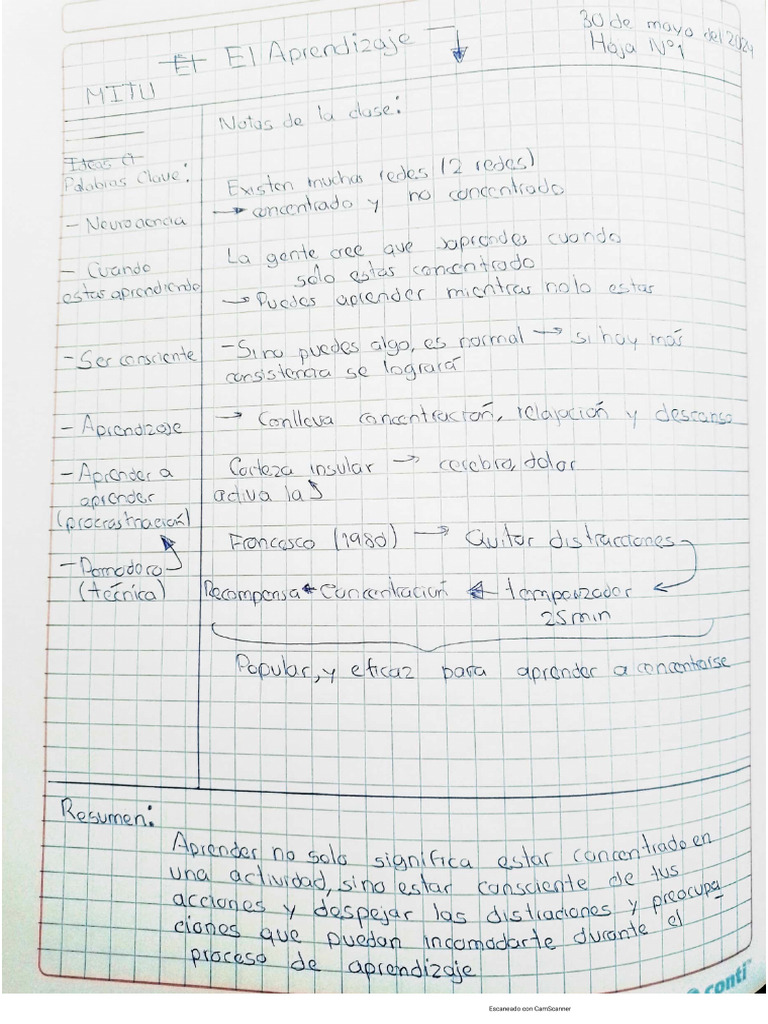 El El Aprendizaje
30 de mayo del 2024
Hoja N°1
MITU
Notas de la clase:
Ideas
Palabras Clave:
Existen muchas redes (2 redes)
→ concentrado y no concentrado
- Neurociencia
La gente cree que aprendes cuando
solo estas concentrado
- Cuando
estas aprendiendo
→ Puedes aprender mientras no lo estas
- Ser consciente
- Si no puedes algo, es normal → si hay más
consistencia se logrará
- Aprendizaje
→ Conlleva concentración, relajación y descanso
- Aprender a
aprender
(procrastinación)
Corteza insular → cerebro, dolor
activa la
Francesco (1980) → Quitar distracciones
- Pomodoro
(técnica)
Recompensa ← Concentración ← temporizador
25 min
Popular, y eficaz para aprender a concentrarse
Resumen:
Aprender no solo significa estar concentrado en
una actividad, sino estar consciente de tus
acciones y despejar las distraciones y preocupa
ciones que puedan incomodarte durante el
proceso de aprendizaje
conti
Escaneado con CamScanner